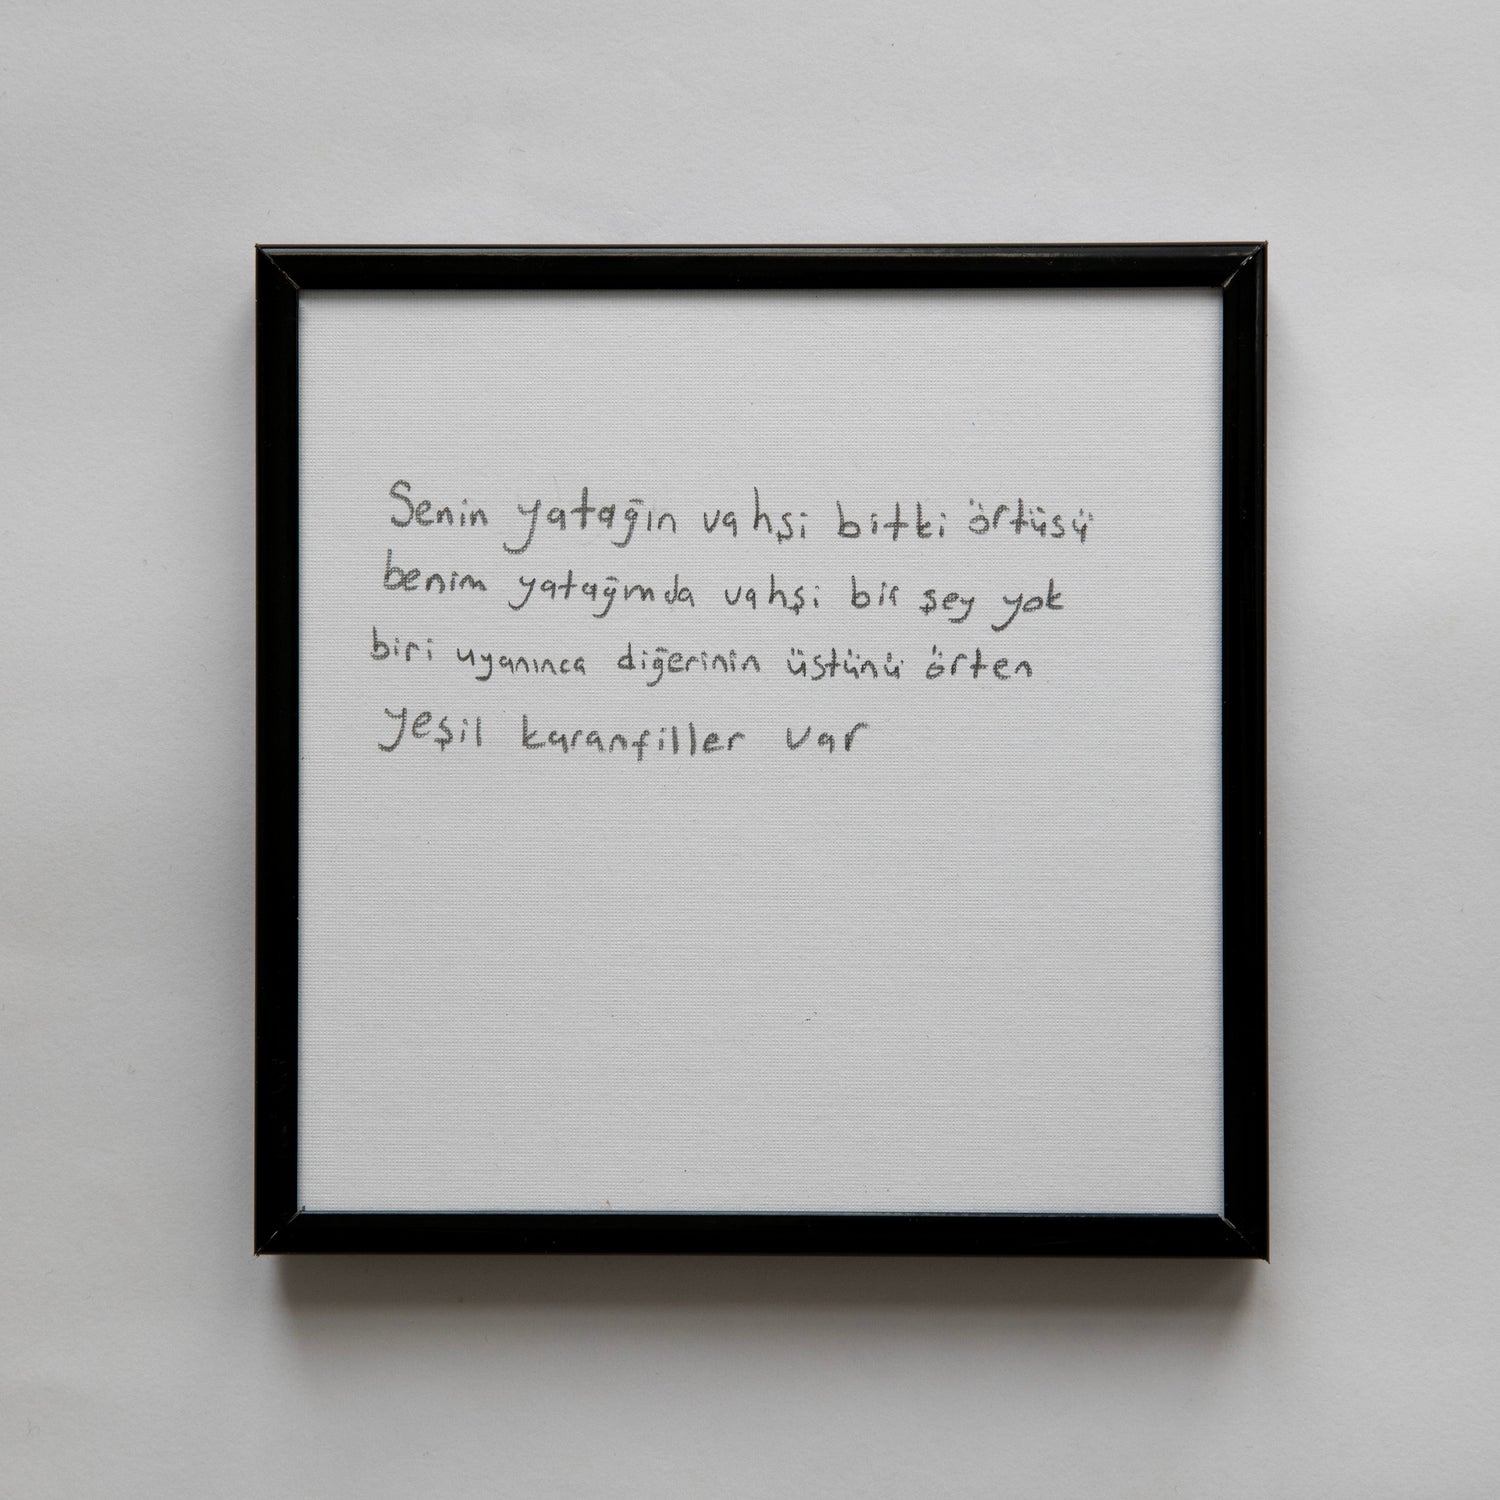 Senin yatağın vahşi bitki örtüsü
benim yatağımda vahşi bir şey yok
biri uyanınca diğerinin üstünü örten
yeşil karanfiller var